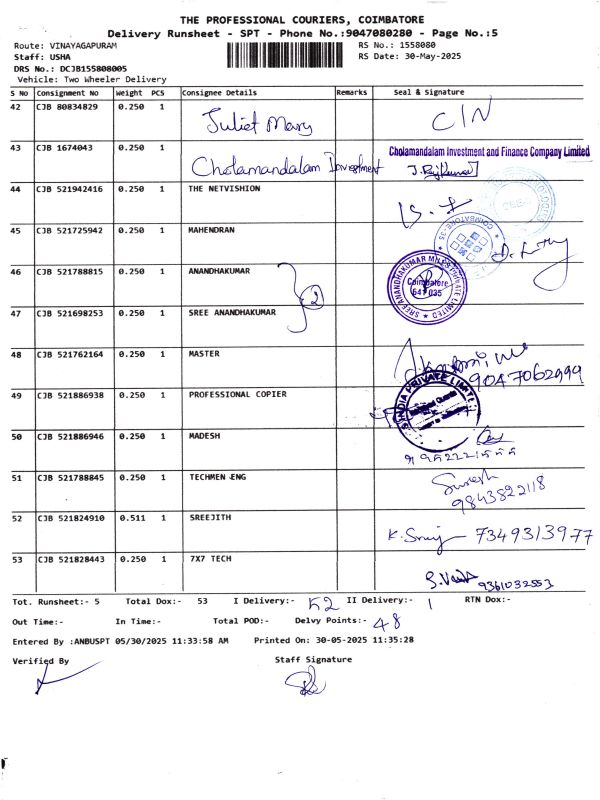 THE PROFESSIONAL COURIERS, COIMBATORE
Delivery Runsheet - SPT - Phone No.:9047080280 - Page No.:5
Route: VINAYAGAPURAM
RS No.: 1558080
Staff: USHA
RS Date: 30-May-2025
DRS No.: DCJB155808005
Vehicle: Two Wheeler Delivery
S No Consignment No Weight PCS Consignee Details Remarks Seal & Signature
42 CJB 80834829 0.250 1 Juliet Mary C/N
43 CJB 1674043 0.250 1 Cholamandalam Investment
Cholamandalam Investment and Finance Company Limited
J. Rajkumar
44 CJB 521942416 0.250 1 THE NETVISHION
45 CJB 521725942 0.250 1 MAHENDRAN
COIMBATORE-35
46 CJB 521788815 0.250 1 ANANDHAKUMAR
2
SREE ANANDHAKUMAR MILLS PRIVATE LIMITED
Coimbatore
641 035
47 CJB 521698253 0.250 1 SREE ANANDHAKUMAR
48 CJB 521762164 0.250 1 MASTER
9047062999
49 CJB 521886938 0.250 1 PROFESSIONAL COPIER
INDIA PRIVATE LIMITED
50 CJB 521886946 0.250 1 MADESH
51 CJB 521788845 0.250 1 TECHMEN ENG Suresh
9843822118
52 CJB 521824910 0.511 1 SREEJITH 7349313977
53 CJB 521828443 0.250 1 7X7 TECH 9361032553
Tot. Runsheet:- 5 Total Dox:- 53 I Delivery:- 52 II Delivery:- 1 RTN Dox:-
Out Time:- In Time:- Total POD:- Delvy Points:- 48
Entered By :ANBUSPT 05/30/2025 11:33:58 AM Printed On: 30-05-2025 11:35:28
Verified By Staff Signature